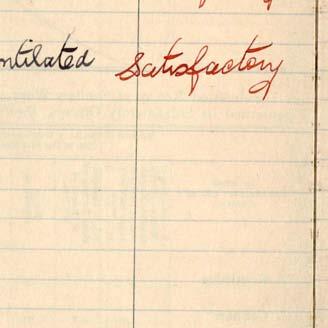 ntilated satisfactory